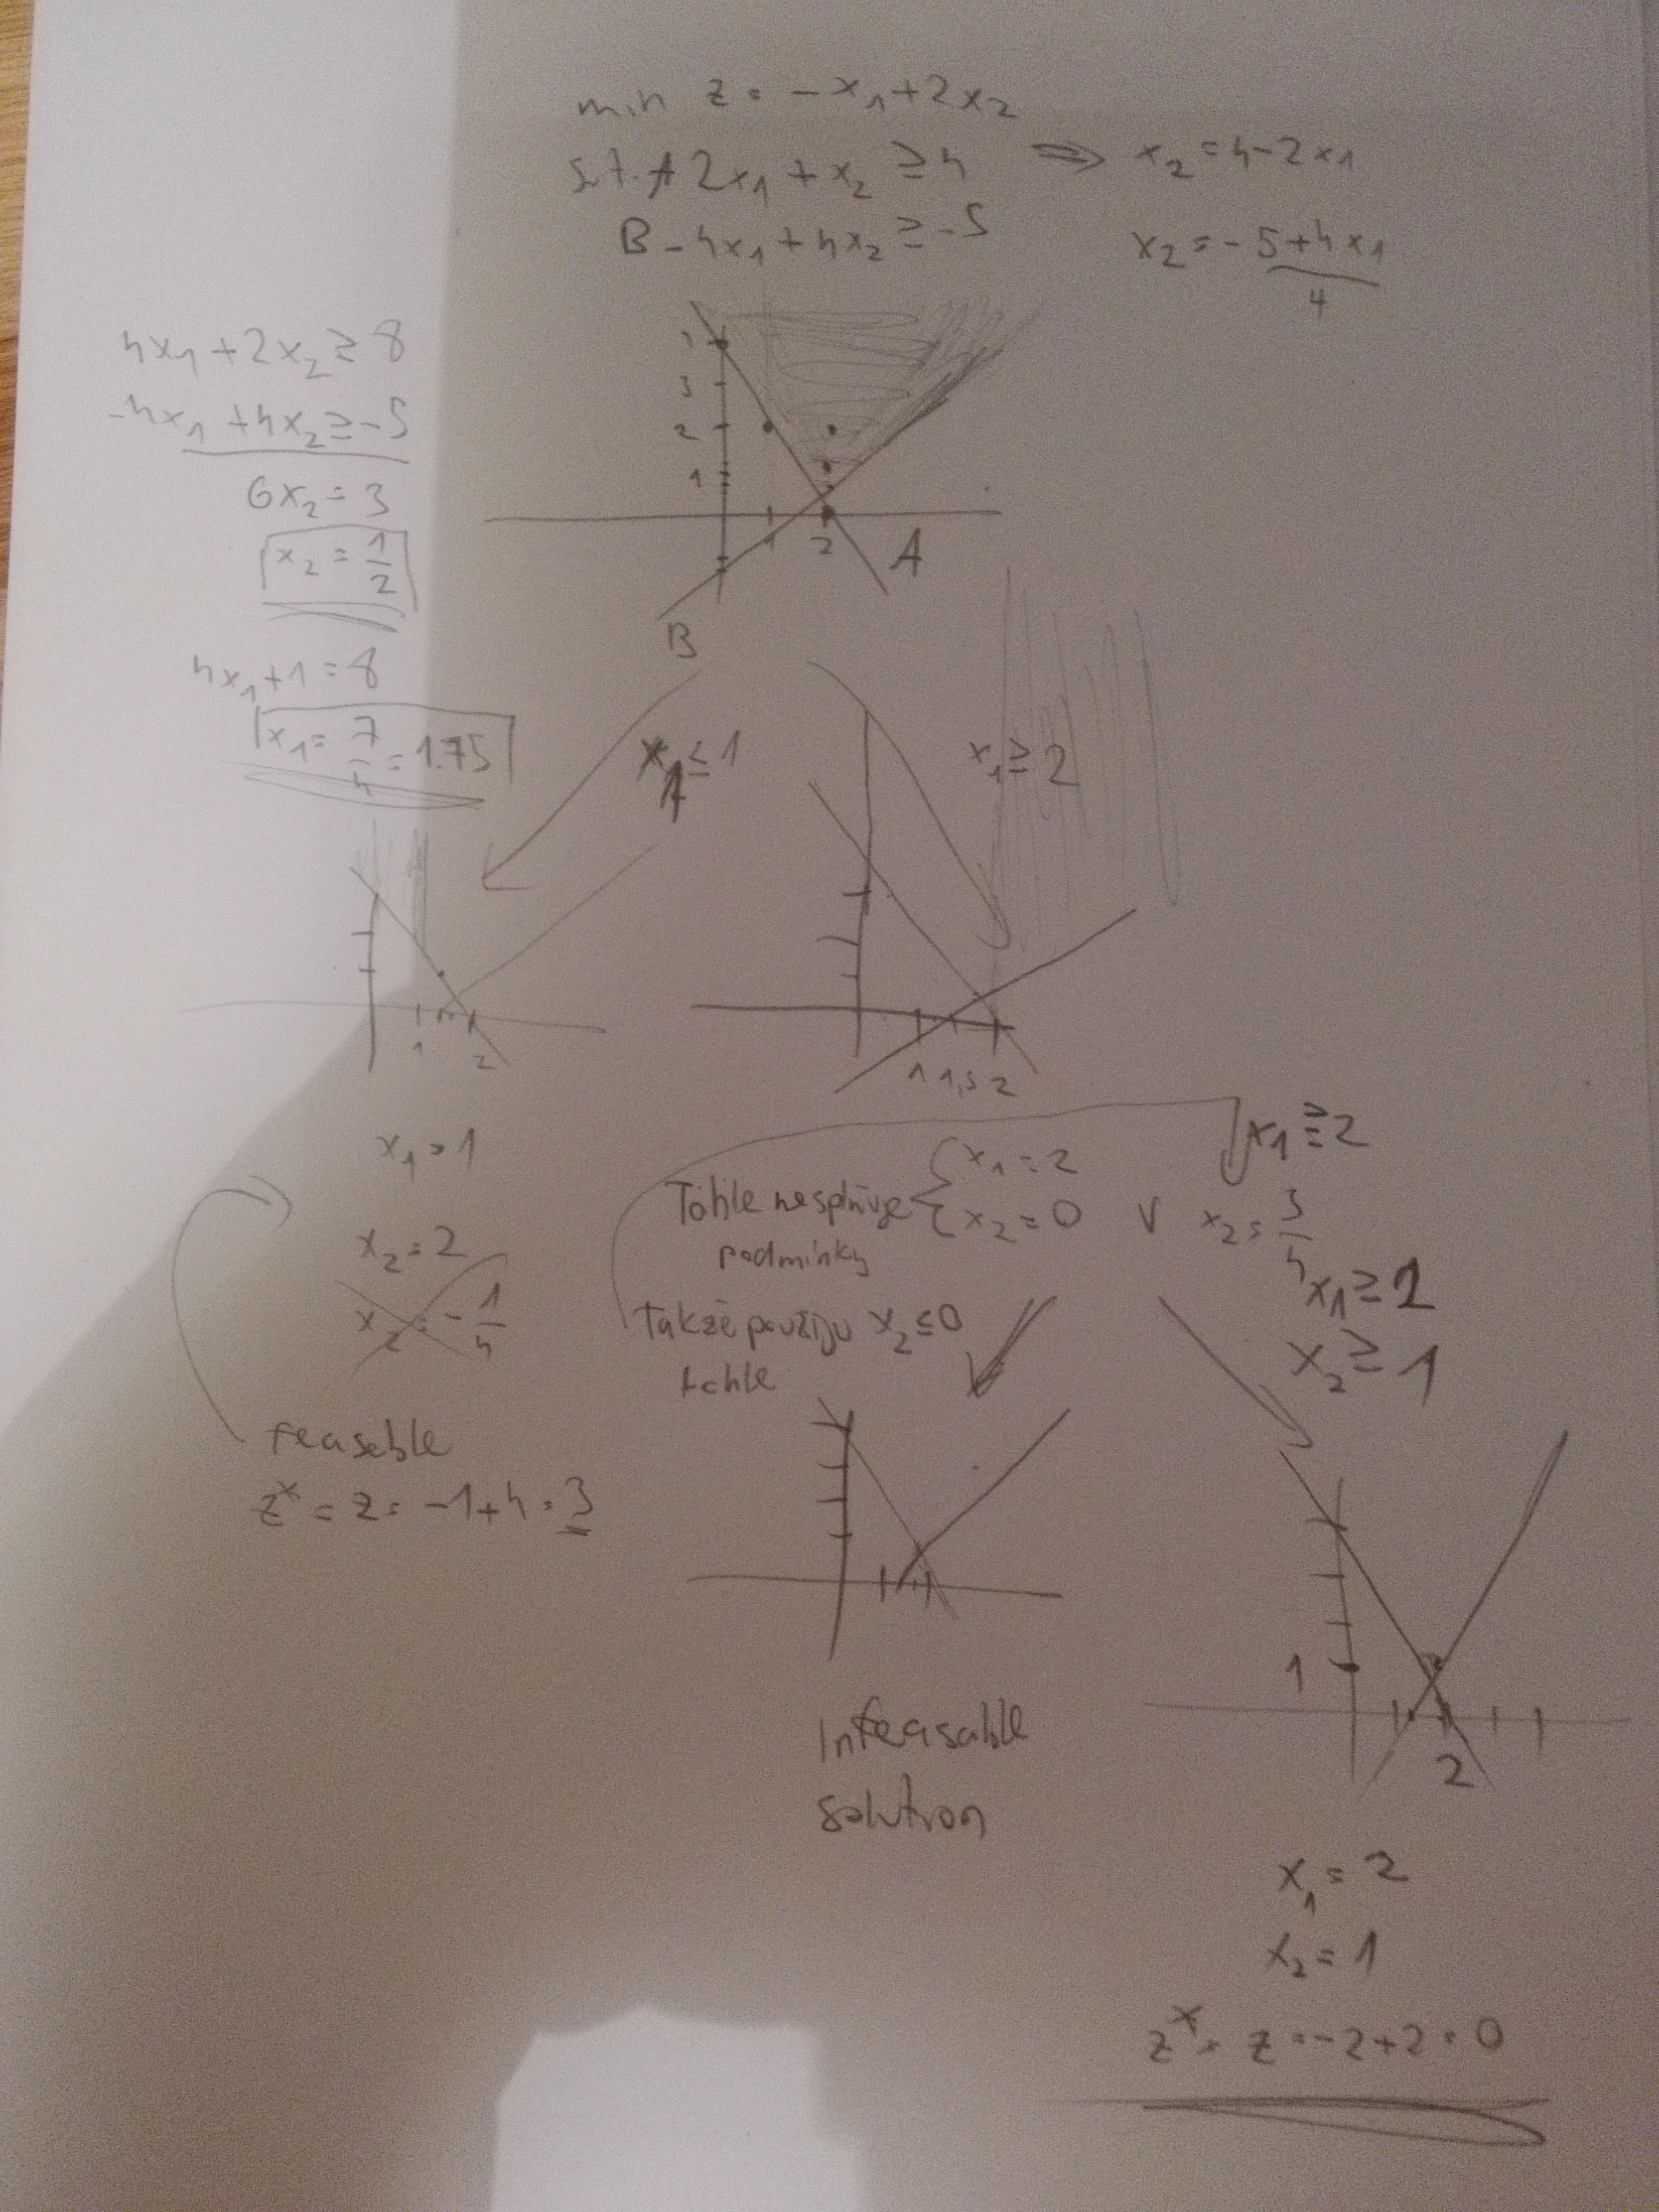 min z = -x1+2x2
s.t. A 2x1 + x2 ≥ 4 ⇒ x2 = 4-2x1
B -4x1 + 4x2 ≥ -5 x2 = -5+4x1
4
4x1 + 2x2 ≥ 8
-4x1 + 4x2 ≥ -5
6x2 = 3
x2 = 1/2
4x1 + 1 = 8
x1 = 7/4 = 1.75
3
2
1
1 2
A
B
x1 ≤ 1
x1 ≥ 2
1 2
1 1,5 2
x1 = 1
x2 = 2
x2 = -1/4
feaseble
z* = z = -1+4 = 3
x1 ≥ 2
Tohle nesplňuje
podmínky
x1 = 2
x2 = 0 v x2 = 3/4
Takže použiju x2 ≤ 0
tohle
x1 ≥ 2
x2 ≥ 1
Infeasable
solution
1
2
x1 = 2
x2 = 1
z* = z = -2+2 = 0